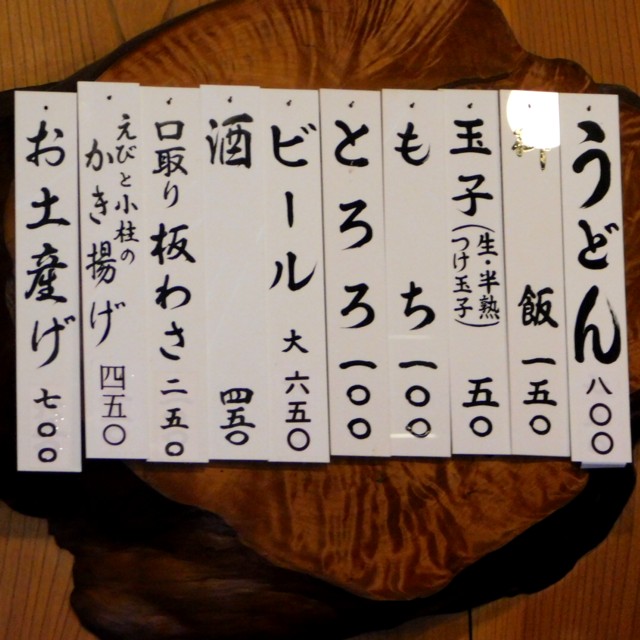 うどん 八〇〇
飯 一五〇
玉子(生・半熟 つけ玉子) 五〇
もち 一〇〇
とろろ 一〇〇
ビール 大 六五〇
酒 四五〇
口取り 板わさ 二五〇
えびと小柱の かき揚げ 四五〇
お土産げ 七〇〇